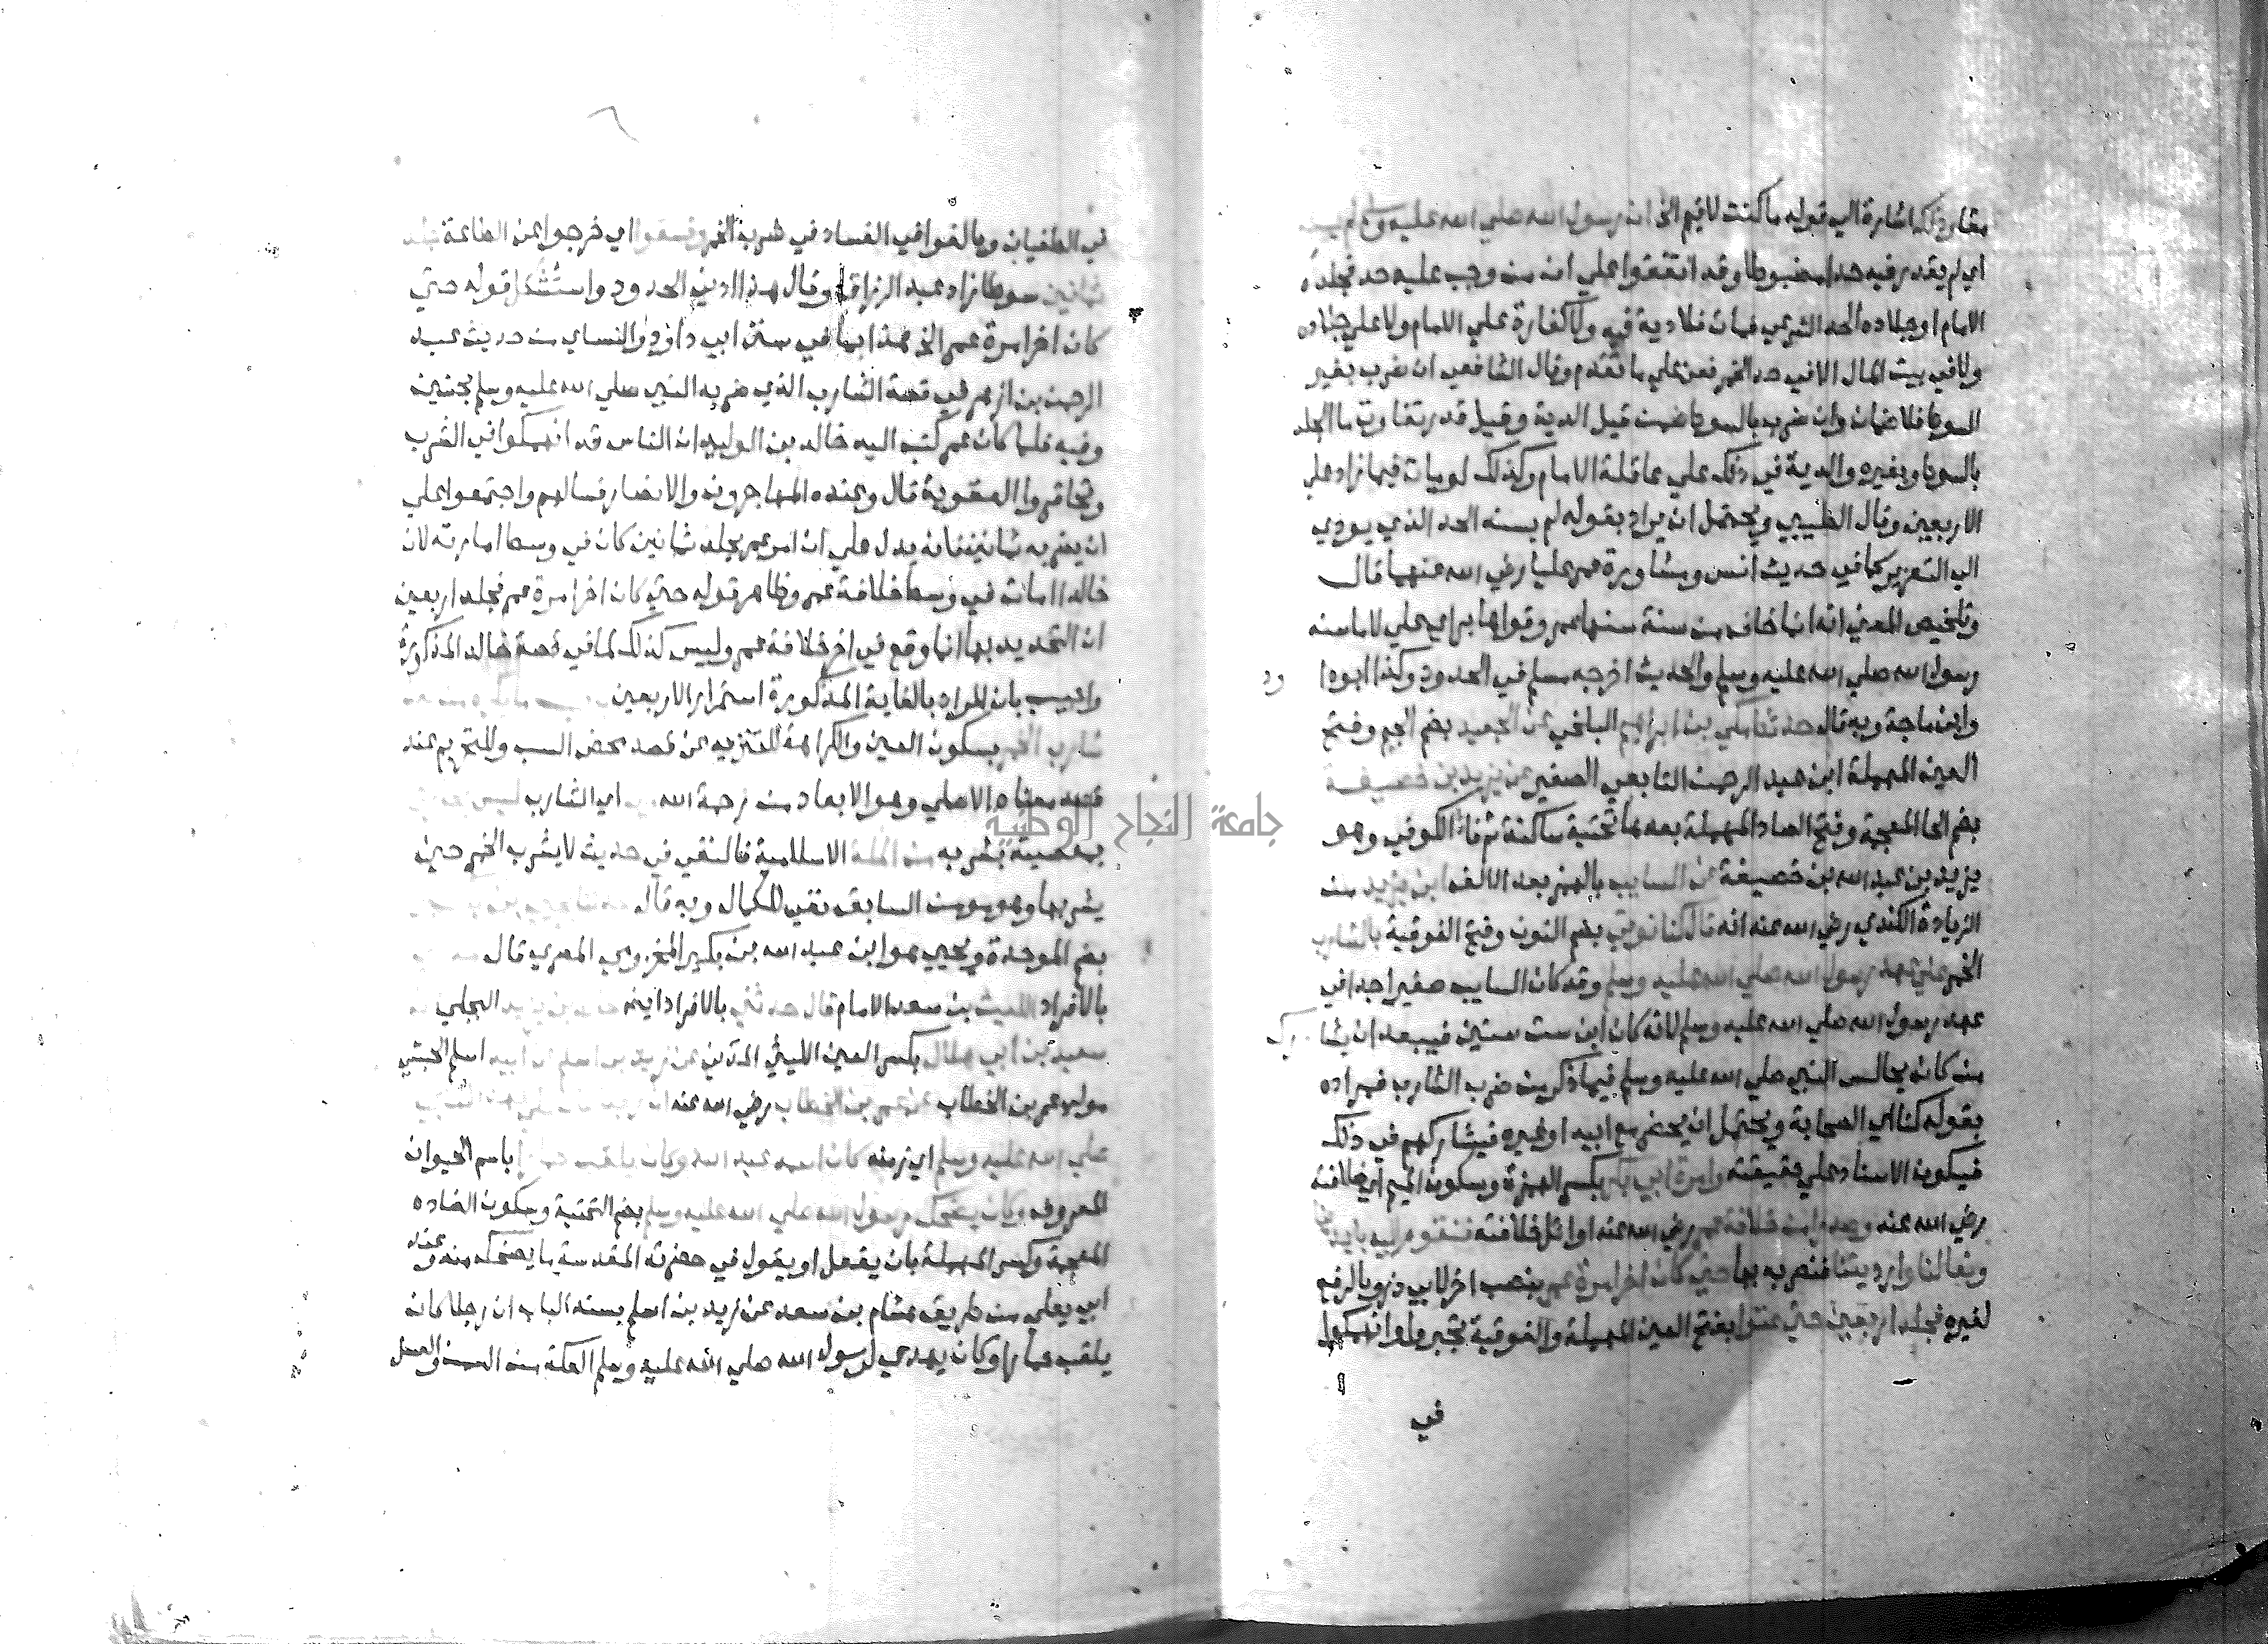 مقدار ذلك اشارة الي قوله ما كنت لاقيم الخ ان رسول الله صلي الله عليه وسلم لم يسنه
اي لم يقدر فيه حدا مضبوطا وقد اتفقوا علي ان من وجب عليه حد فجلده
الامام او جلاده الحد الشرعي فمات فلا دية فيه ولا كفارة علي الامام ولا علي جلاده
ولا في بيت المال الا في حد الخمر فعن علي ما تقدم وقال الشافعي ان ضرب بغير
السوط فلا ضمان وان ضرب بالسوط ضمن قيل الدية وقيل قدر تفاوت ما الجلد
بالسوط وبغيره والدية في ذلك علي عاقلة الامام وكذلك لو مات فيما زاد علي
الاربعين وقال الطيبي ويحتمل ان يراد بقوله لم يسنه الحد الذي يودي
الي التعزير كما في حديث انس ومشاورة عمر عليا رضي الله عنهما قال
وتلخيص المعني انه انما خاف من سنة سنها عمر وقواها براي علي لا ما سنه
رسول الله صلي الله عليه وسلم والحديث اخرجه مسلم في الحدود وكذا ابو دا
ود
وابن ماجة وبه قال حدثنا مكي بن ابراهيم البلخي عن الجعيد بضم الجيم وفتح
العين المهملة ابن عبد الرحمن التابعي الصغير عن يزيد بن خصيفة
بضم الخا المعجمة وفتح الصاد المهملة بعدها تحتية ساكنة ثم فا الكوفي وهو
يزيد بن عبد الله بن خصيفة عن السايب بالهمز بعد الالف ابن يزيد من
الزيادة الكندي رضي الله عنه انه قال كنا نوتي بضم النون وفتح الفوقية بالشارب
الخمر علي عهد رسول الله صلي الله عليه وسلم وقد كان السايب صغيرا جدا في
عهد رسول الله صلي الله عليه وسلم لانه كان ابن ست سنين فيبعد ان يشا
رك
من كان يجالس النبي صلي الله عليه وسلم فيما ذكر من ضرب الشارب فمراده
بقوله كنا اي الصحابة ويحتمل ان يحضر مع ابيه او غيره فيشاركهم في ذلك
فيكون الاسناد علي حقيقته وامرة ابي بكر بكسر الهمزة وسكون الميم اي خلافته
رضي الله عنه وصدرا من خلافة عمر رضي الله عنه اوائل خلافته فنقوم اليه بايدينا
ونعالنا وارديتنا فنضربه بها حتي كان اخر امرة عمر بنصب اخر لابي ذر وبالرفع
لغيره فجلد اربعين حتي عتوا بفتح العين المهملة والفوقية تجبروا وانهمكوا
في
في الطغيان وبالغوا في الفساد في شرب الخمر وفسقوا اي خرجوا عن الطاعة جلد
ثمانين سوطا زاد عبد الرزاق وقال هذا ادني الحدود واستشكل قوله حتي
كان اخر امرة عمر الخ هذا بما في سنن ابي داود والنساي من حديث عبد
الرحمن بن ازهر في قصة الشارب الذي ضربه النبي صلي الله عليه وسلم بحنين
وفيه فلما كان عمر كتب اليه خالد بن الوليد ان الناس قد انهمكوا في الشرب
وتحاقروا العقوبة قال وعنده المهاجرون والانصار فسالهم واجتمعوا علي
ان يضربه ثمانين فانه يدل علي ان امر عمر بجلد ثمانين كان في وسط امارته لان
خالدا مات في وسط خلافة عمر وظاهر قوله حتي كان اخر امرة عمر فجلد اربعين
ان التحديد بها انما وقع في اخر خلافة عمر وليس كذلك لما في قصة خالد المذكورة
واجيب بان المراد بالغاية المذكورة استمرار الاربعين
شارب الخمر بسكون العين والكراهة للتنزيه عن قصد محض السب وللتحريم عند
قصد معناه الاصلي وهو الابعاد من رحمة الله اي الشارب ليس
بمعصيته بشربه من الملة الاسلامية فالنفي في حديث لا يشرب الخمر حين
يشربها وهو مومن السابق نفي للكمال وبه قال
بضم الموحدة ويحيي هو ابن عبد الله بن بكير المخزومي المصري قال
بالافراد الليث بن سعد الامام قال حدثني بالافراد ايضا خالد بن يزيد البجلي
سعيد بن ابي هلال بكسر العين الليثي المدني عن زيد بن اسلم عن ابيه اسلم الحبشي
مولي عمر بن الخطاب عن عمر بن الخطاب رضي الله عنه ان
صلي الله عليه وسلم اي زمنه كان اسمه عبد الله وكان يلقب حمارا باسم الحيوان
المعروف وكان يضحك رسول الله صلي الله عليه وسلم بضم التحتية وسكون الضاد
المعجمة وكسر المهملة بان يفعل او يقول في حضرته المقدسة ما يضحك منه وعند
ابي يعلي من طريق هشام بن سعد عن زيد بن اسلم بسند الباب ان رجلا كان
يلقب حمارا وكان يهدي لرسول الله صلي الله عليه وسلم العكة من السمن والعسل
جامعة النجاح الوطنية